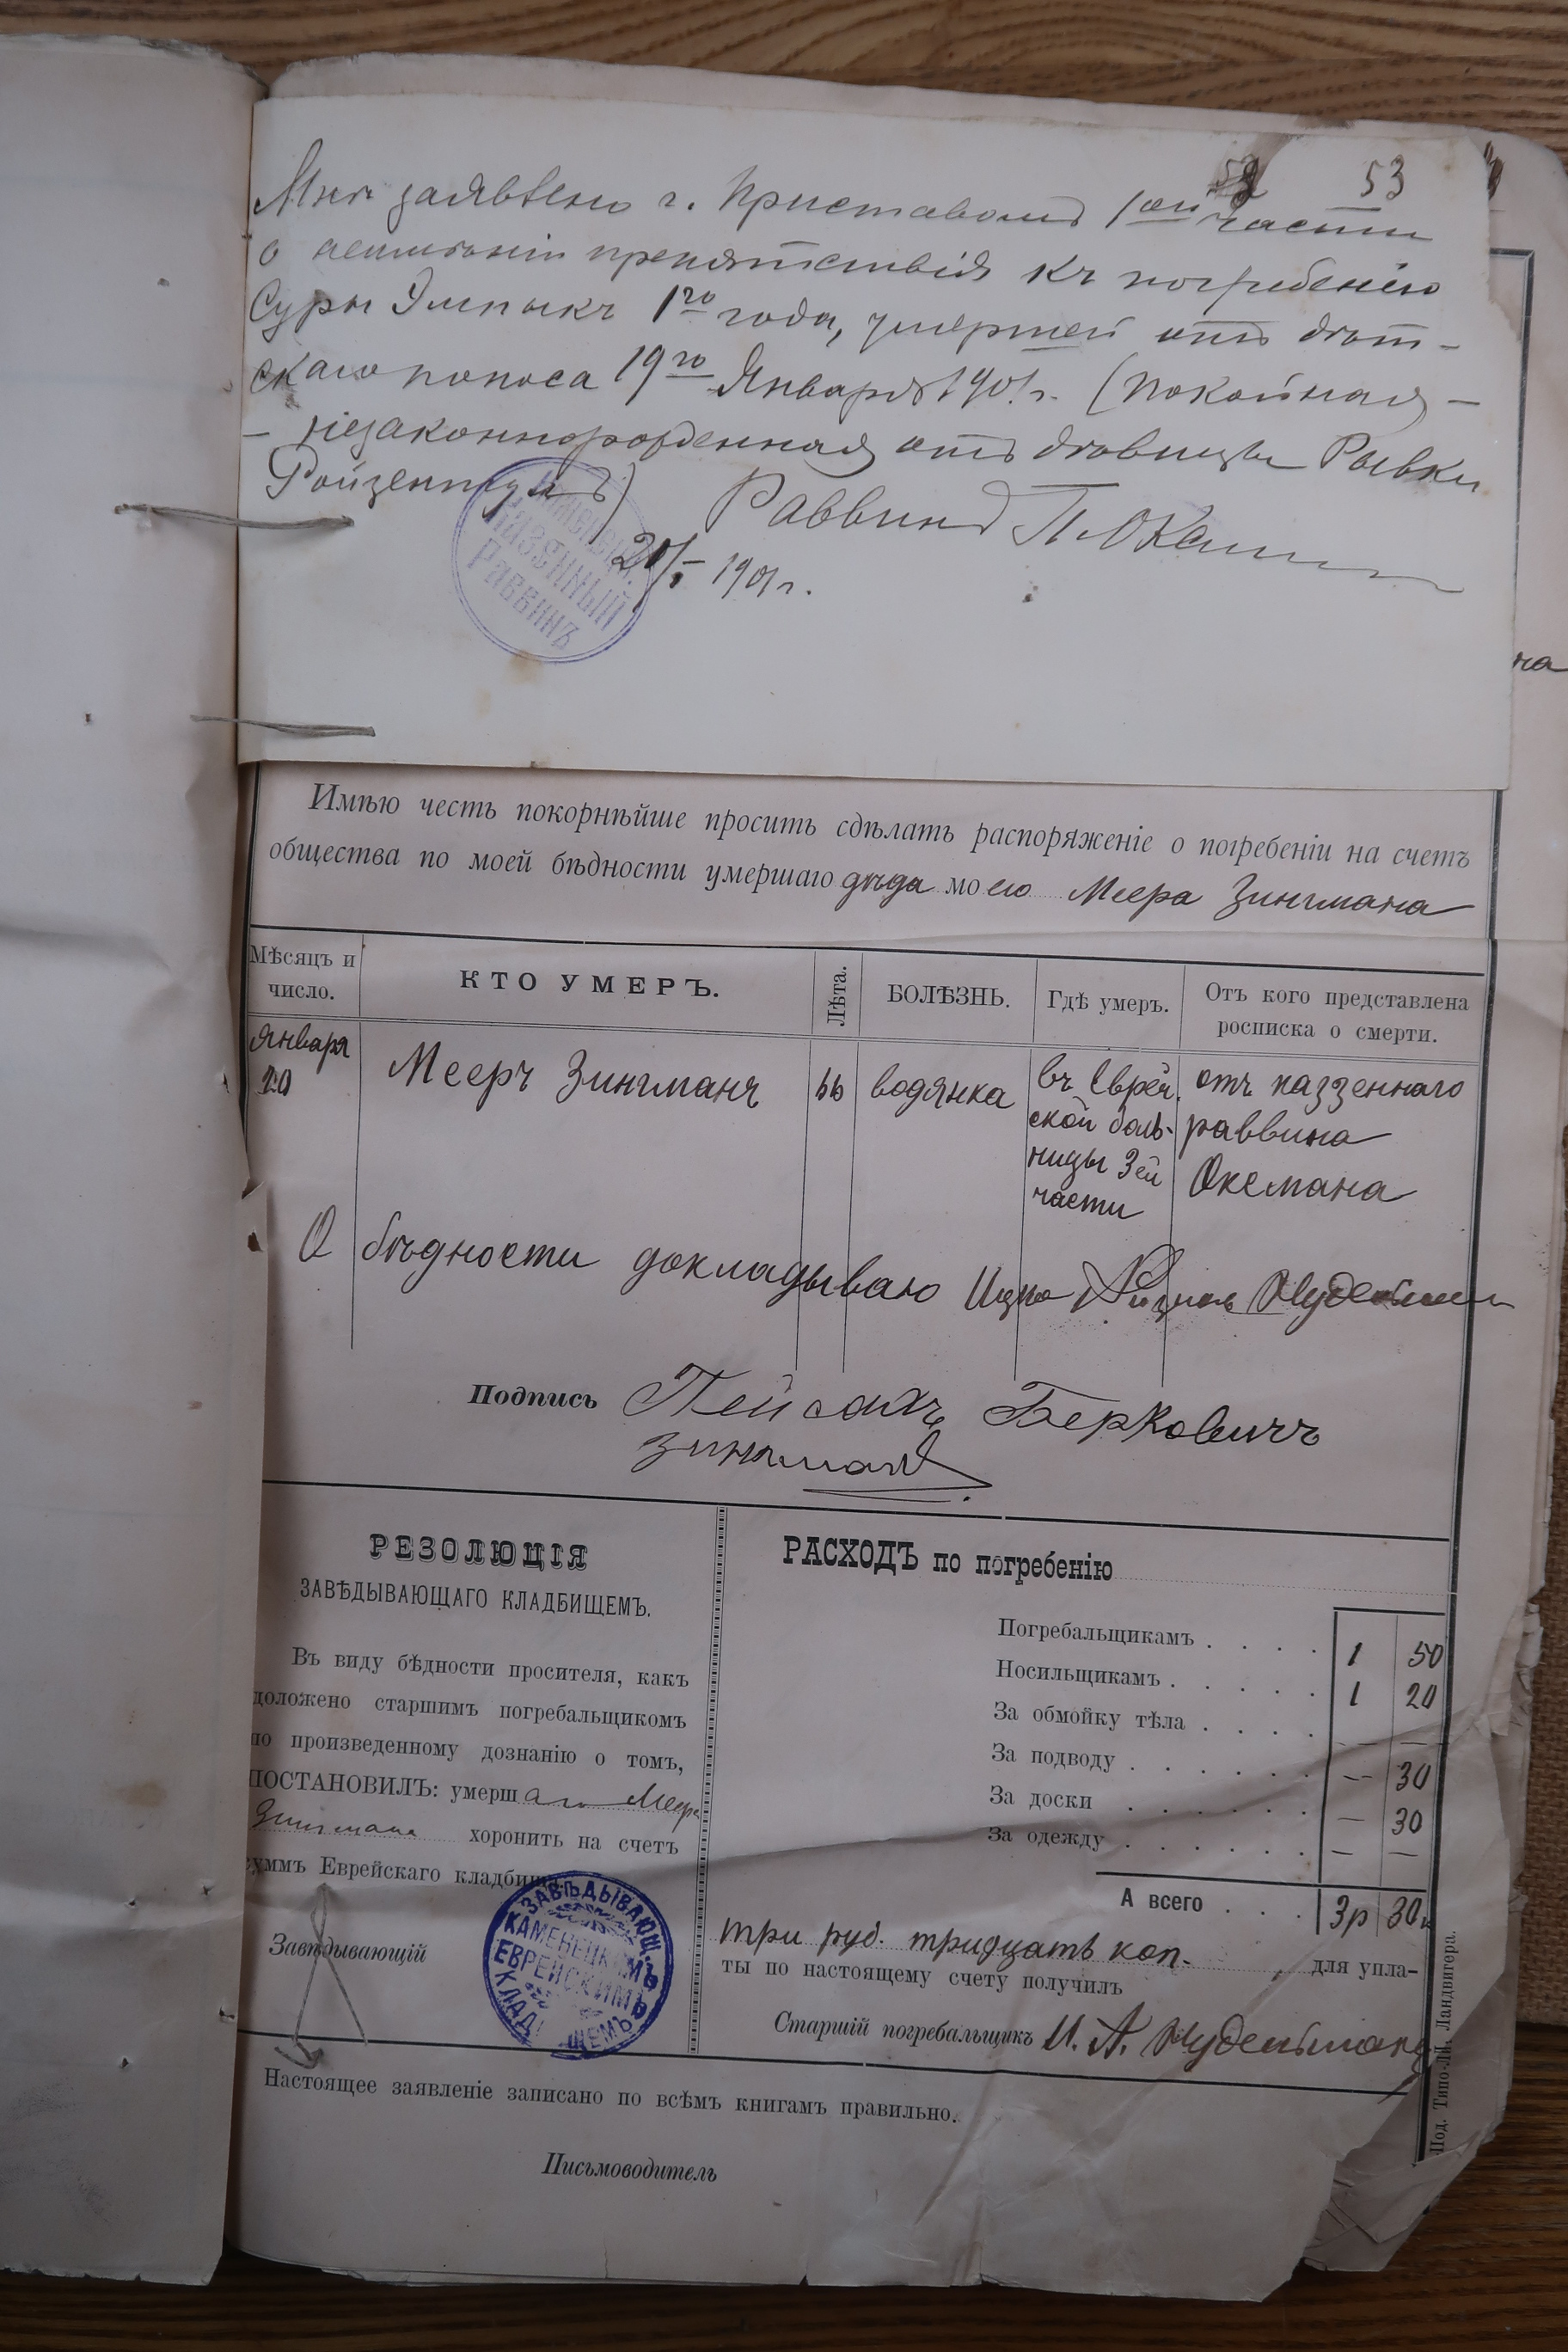 53
Мнѣ заявлено г. Приставомъ 1ой части
о неимѣніи препятствія къ погребенію
Суры 1го года, умершей отъ дѣт-
скаго поноса 19го Января 1901 г. (покойная -
- незаконнорожденная отъ дѣвицы Рывки
Раввинъ П. Оксман
20/I 1901 г.
КАЗЕННЫЙ
РАВВИНЪ
на
Имѣю честь покорнѣйше просить сдѣлать распоряженіе о погребеніи на счетъ
общества по моей бѣдности умершаго дѣда моего Меера Зингмана
Мѣсяцъ и число.
КТО УМЕРЪ.
Лѣта.
БОЛѢЗНЬ.
Гдѣ умеръ.
Отъ кого представлена росписка о смерти.
Января
20
Мееръ Зингманъ
66
водянка
въ Еврей
ской боль-
ницы 3ей
части
отъ каззеннаго
раввина
Оксмана
О бѣдности докладываю Ицко Нудельман
Подпись Пейсахъ Берковичъ
Зингман
РЕЗОЛЮЦІЯ
ЗАВѢДЫВАЮЩАГО КЛАДБИЩЕМЪ.
Въ виду бѣдности просителя, какъ
доложено старшимъ погребальщикомъ
по произведенному дознанію о томъ,
ПОСТАНОВИЛЪ: умершаго Меера
Зингмана хоронить на счетъ
суммъ Еврейскаго кладбища.
Завѣдывающій
ЗАВѢДЫВАЮЩ.
КАМЕНЕЦКИМЪ
ЕВРЕЙСКИМЪ
КЛАДБИЩЕМЪ
РАСХОДЪ по погребенію
Погребальщикамъ . . . . 1 50
Носильщикамъ . . . . . 1 20
За обмойку тѣла . . . . — —
За подводу . . . . . . — 30
За доски . . . . . . — 30
За одежду . . . . . . — —
А всего . . . 3р 30к
три руб. тридцать коп. для упла-
ты по настоящему счету получилъ
Старшій погребальщикъ И. А. Нудельманъ
Настоящее заявленіе записано по всѣмъ книгамъ правильно.
Письмоводитель
Под. Типо-Лит. Ландвигера.